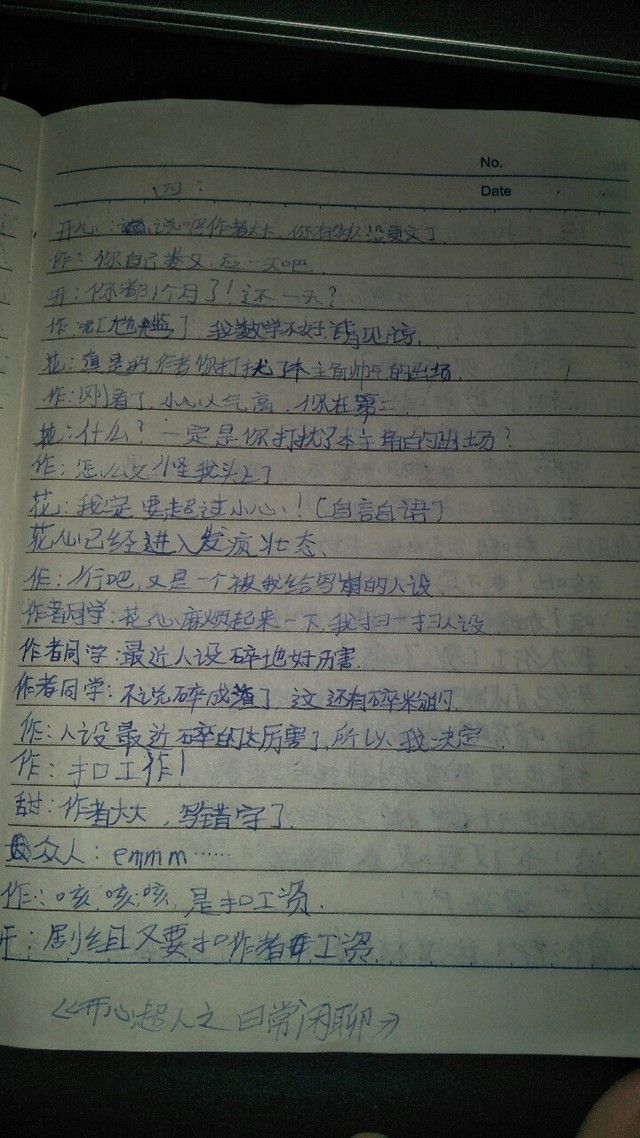 No.
四:
Date
开心:说吧作者大大,你有多久没更文了
作:你自己娄又,一天吧
开:你都31个月了!这不一天?
作:[尴尬]我数学不好请见谅.
花:真是的,作者你打扰了本主角帅气的出场.
作:别着了,小心人气高,你在第二.
花:什么?一定是你打扰了本主角的出场?
作:怎么又怪我头上了
花:我一定要超过小心!(自言自语)
花心已经进入发疯状态,
作:行吧,又是一个被我给写崩的人设,
作者同学:花心麻烦起来一下,我扫一扫人设,
作者同学:最近人设碎地好厉害.
作者同学:不说碎成渣了,这还有碎粉的,
作:人设最近碎的太厉害了,所以我决定,
作:扣工作!
甜:作者大大,写错字了,
众人:emmm……
作:咳,咳,咳,是扣工资,
开:剧组又要扣作者工资.
《开心超人之日常闲聊》